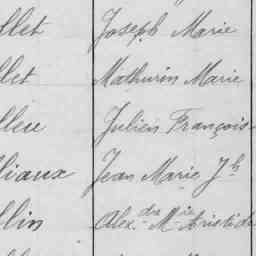 llet Joseph Marie
llet Mathurin Marie
lleu Julien François
liaux Jean Marie Jh
llin Alex.dre Mie Aristide